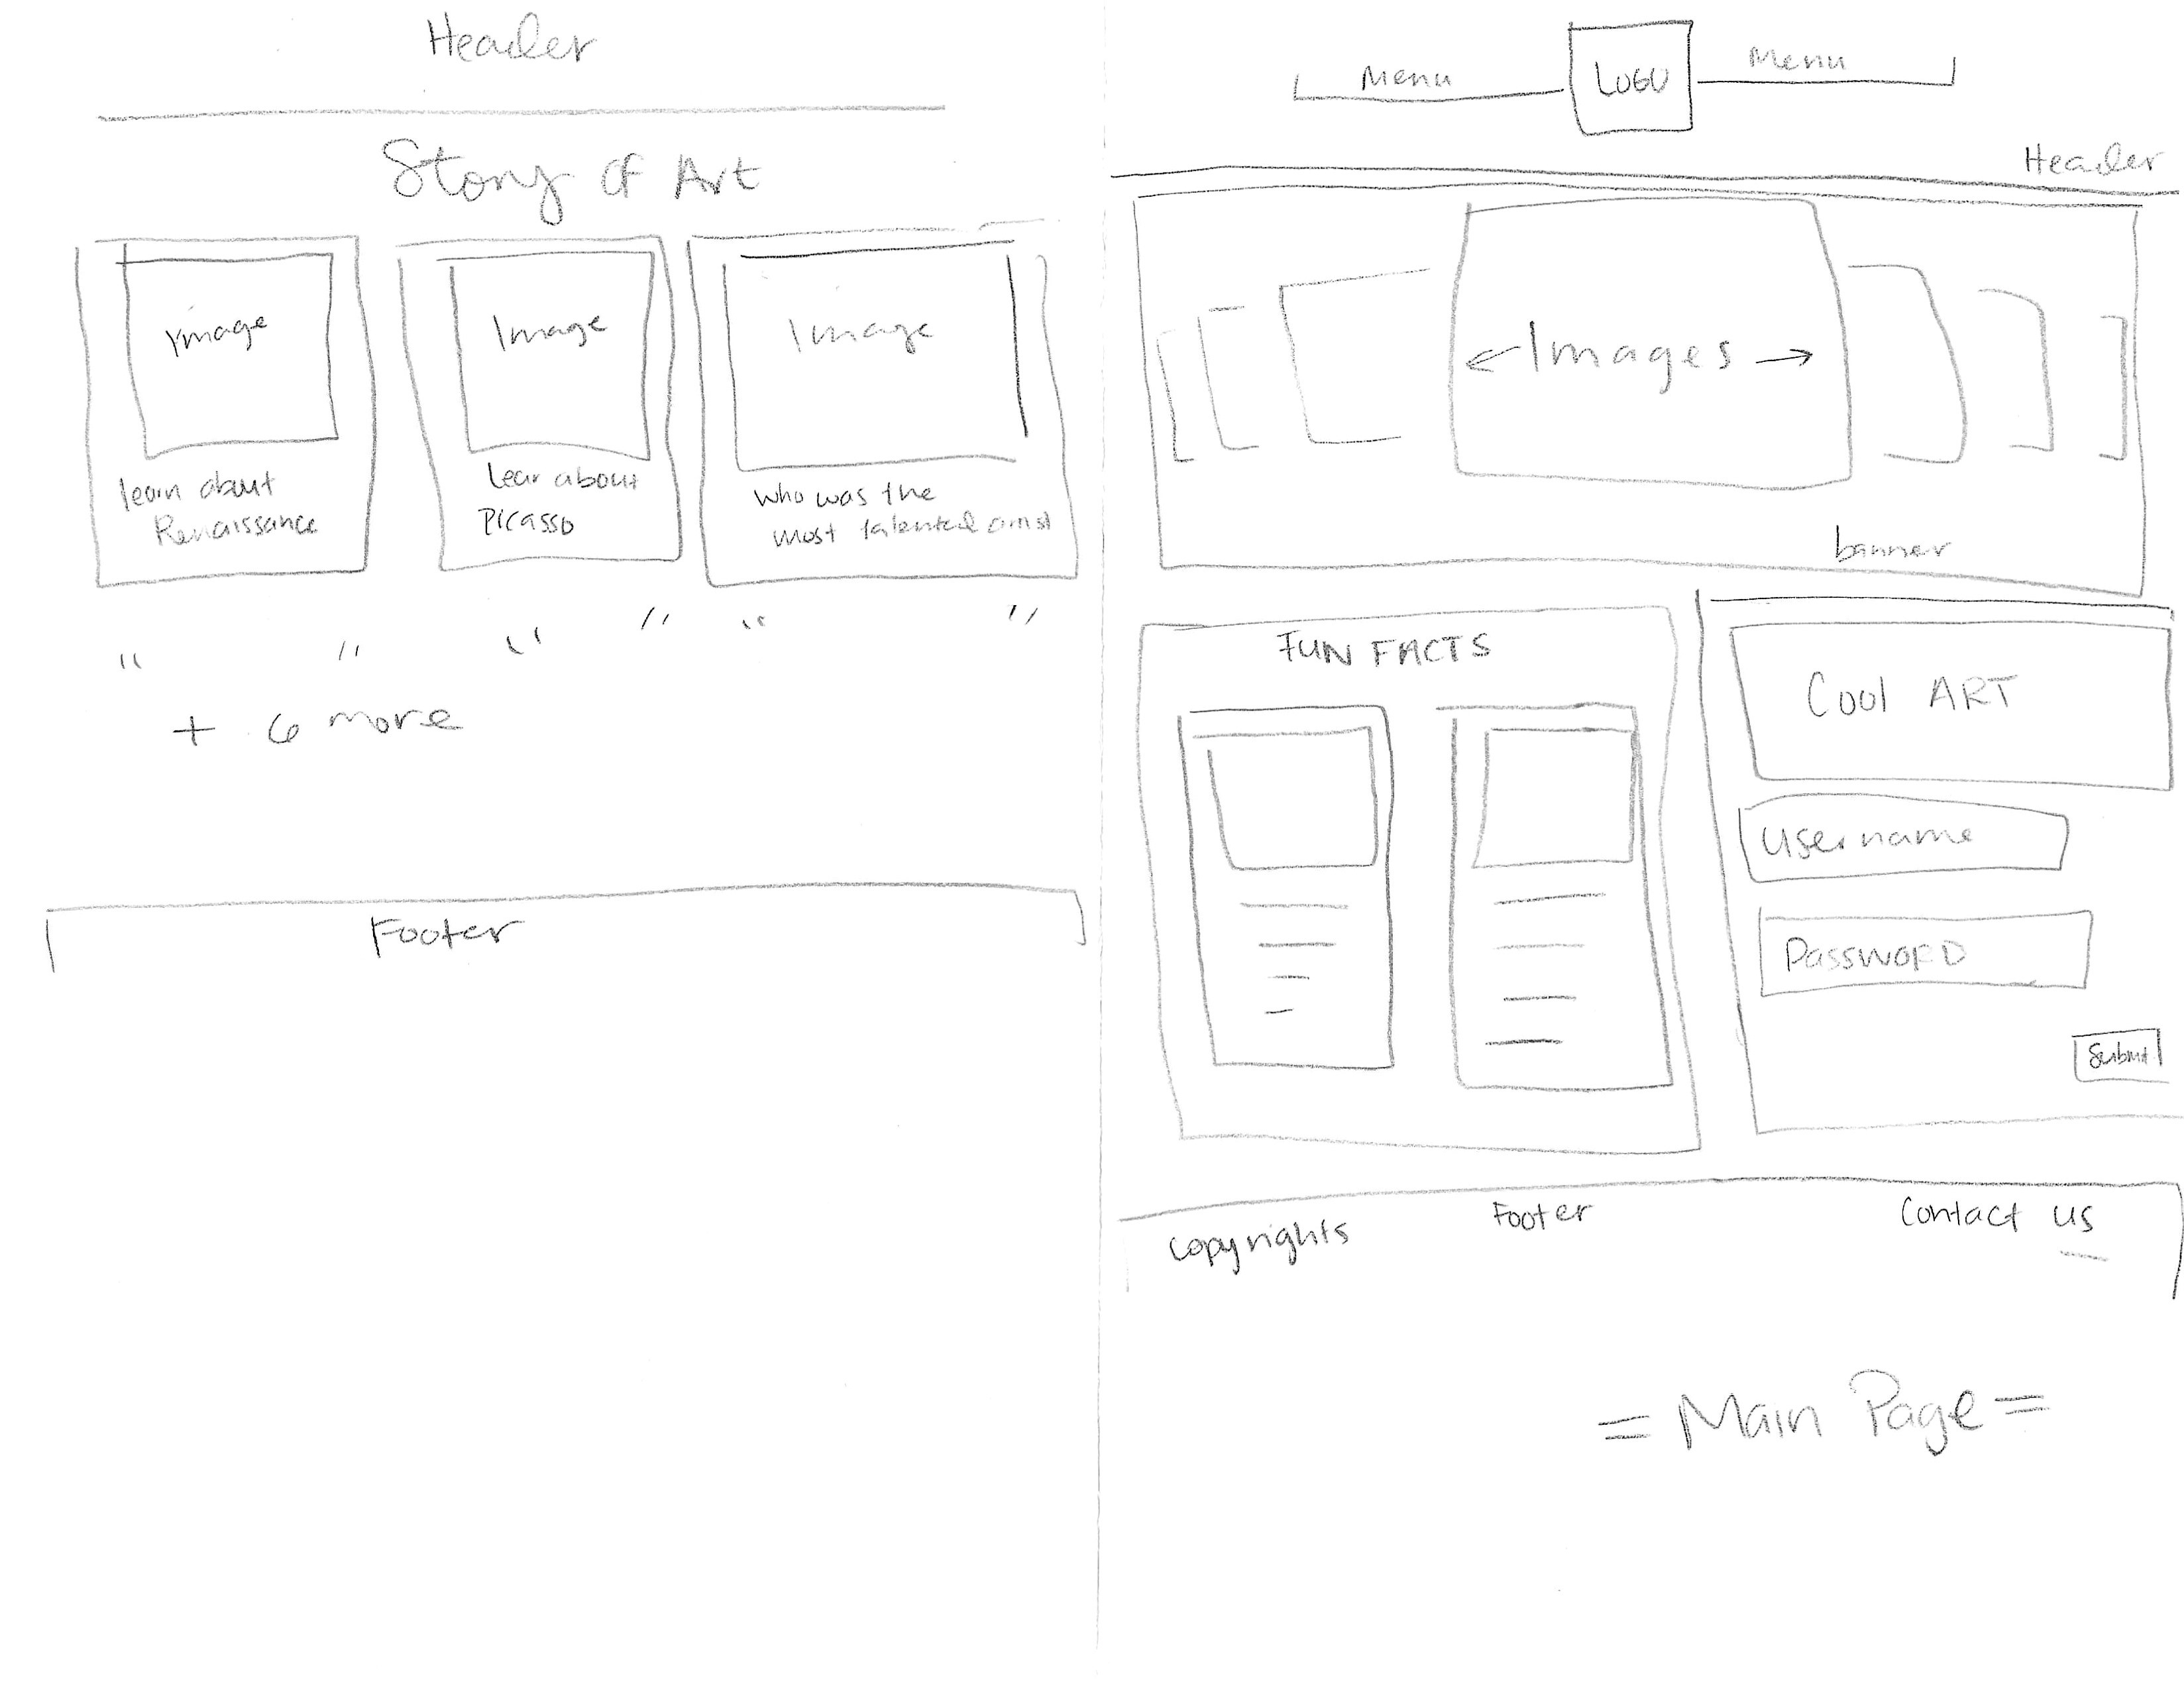 Header
Story of Art
Image
learn about
Renaissance
Image
Lear about
Picasso
Image
who was the
most talented
" " " " " "
+ 6 more
Footer
Menu
LOGO
Menu
Header
← Images →
banner
FUN FACTS
Cool ART
Username
PASSWORD
Submit
copyrights
Footer
Contact us
= Main Page =